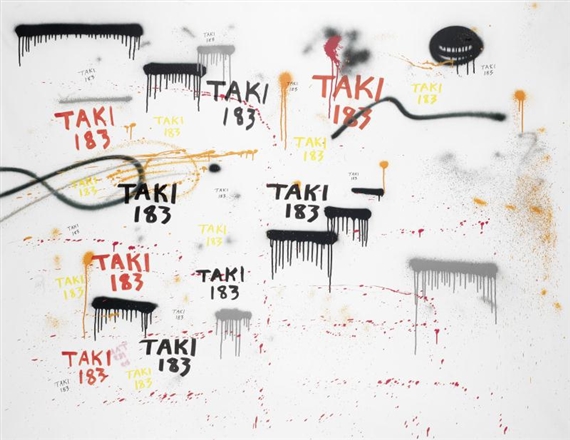 TAKI
183
TAKI
183
TAKI
183
TAKI
183
TAKI
183
TAKI
183
TAKI
183
TAKI
183
TAKI
183
TAKI
183
TAKI
183
TAKI
183
TAKI
183
TAKI
183
TAKI
183
TAKI
183
TAKI
183
TAKI
183
TAKI
183
TAKI
183
TAKI
183
TAKI
183
TAKI
183
TAKI
183
TAKI
183
TAKI
183